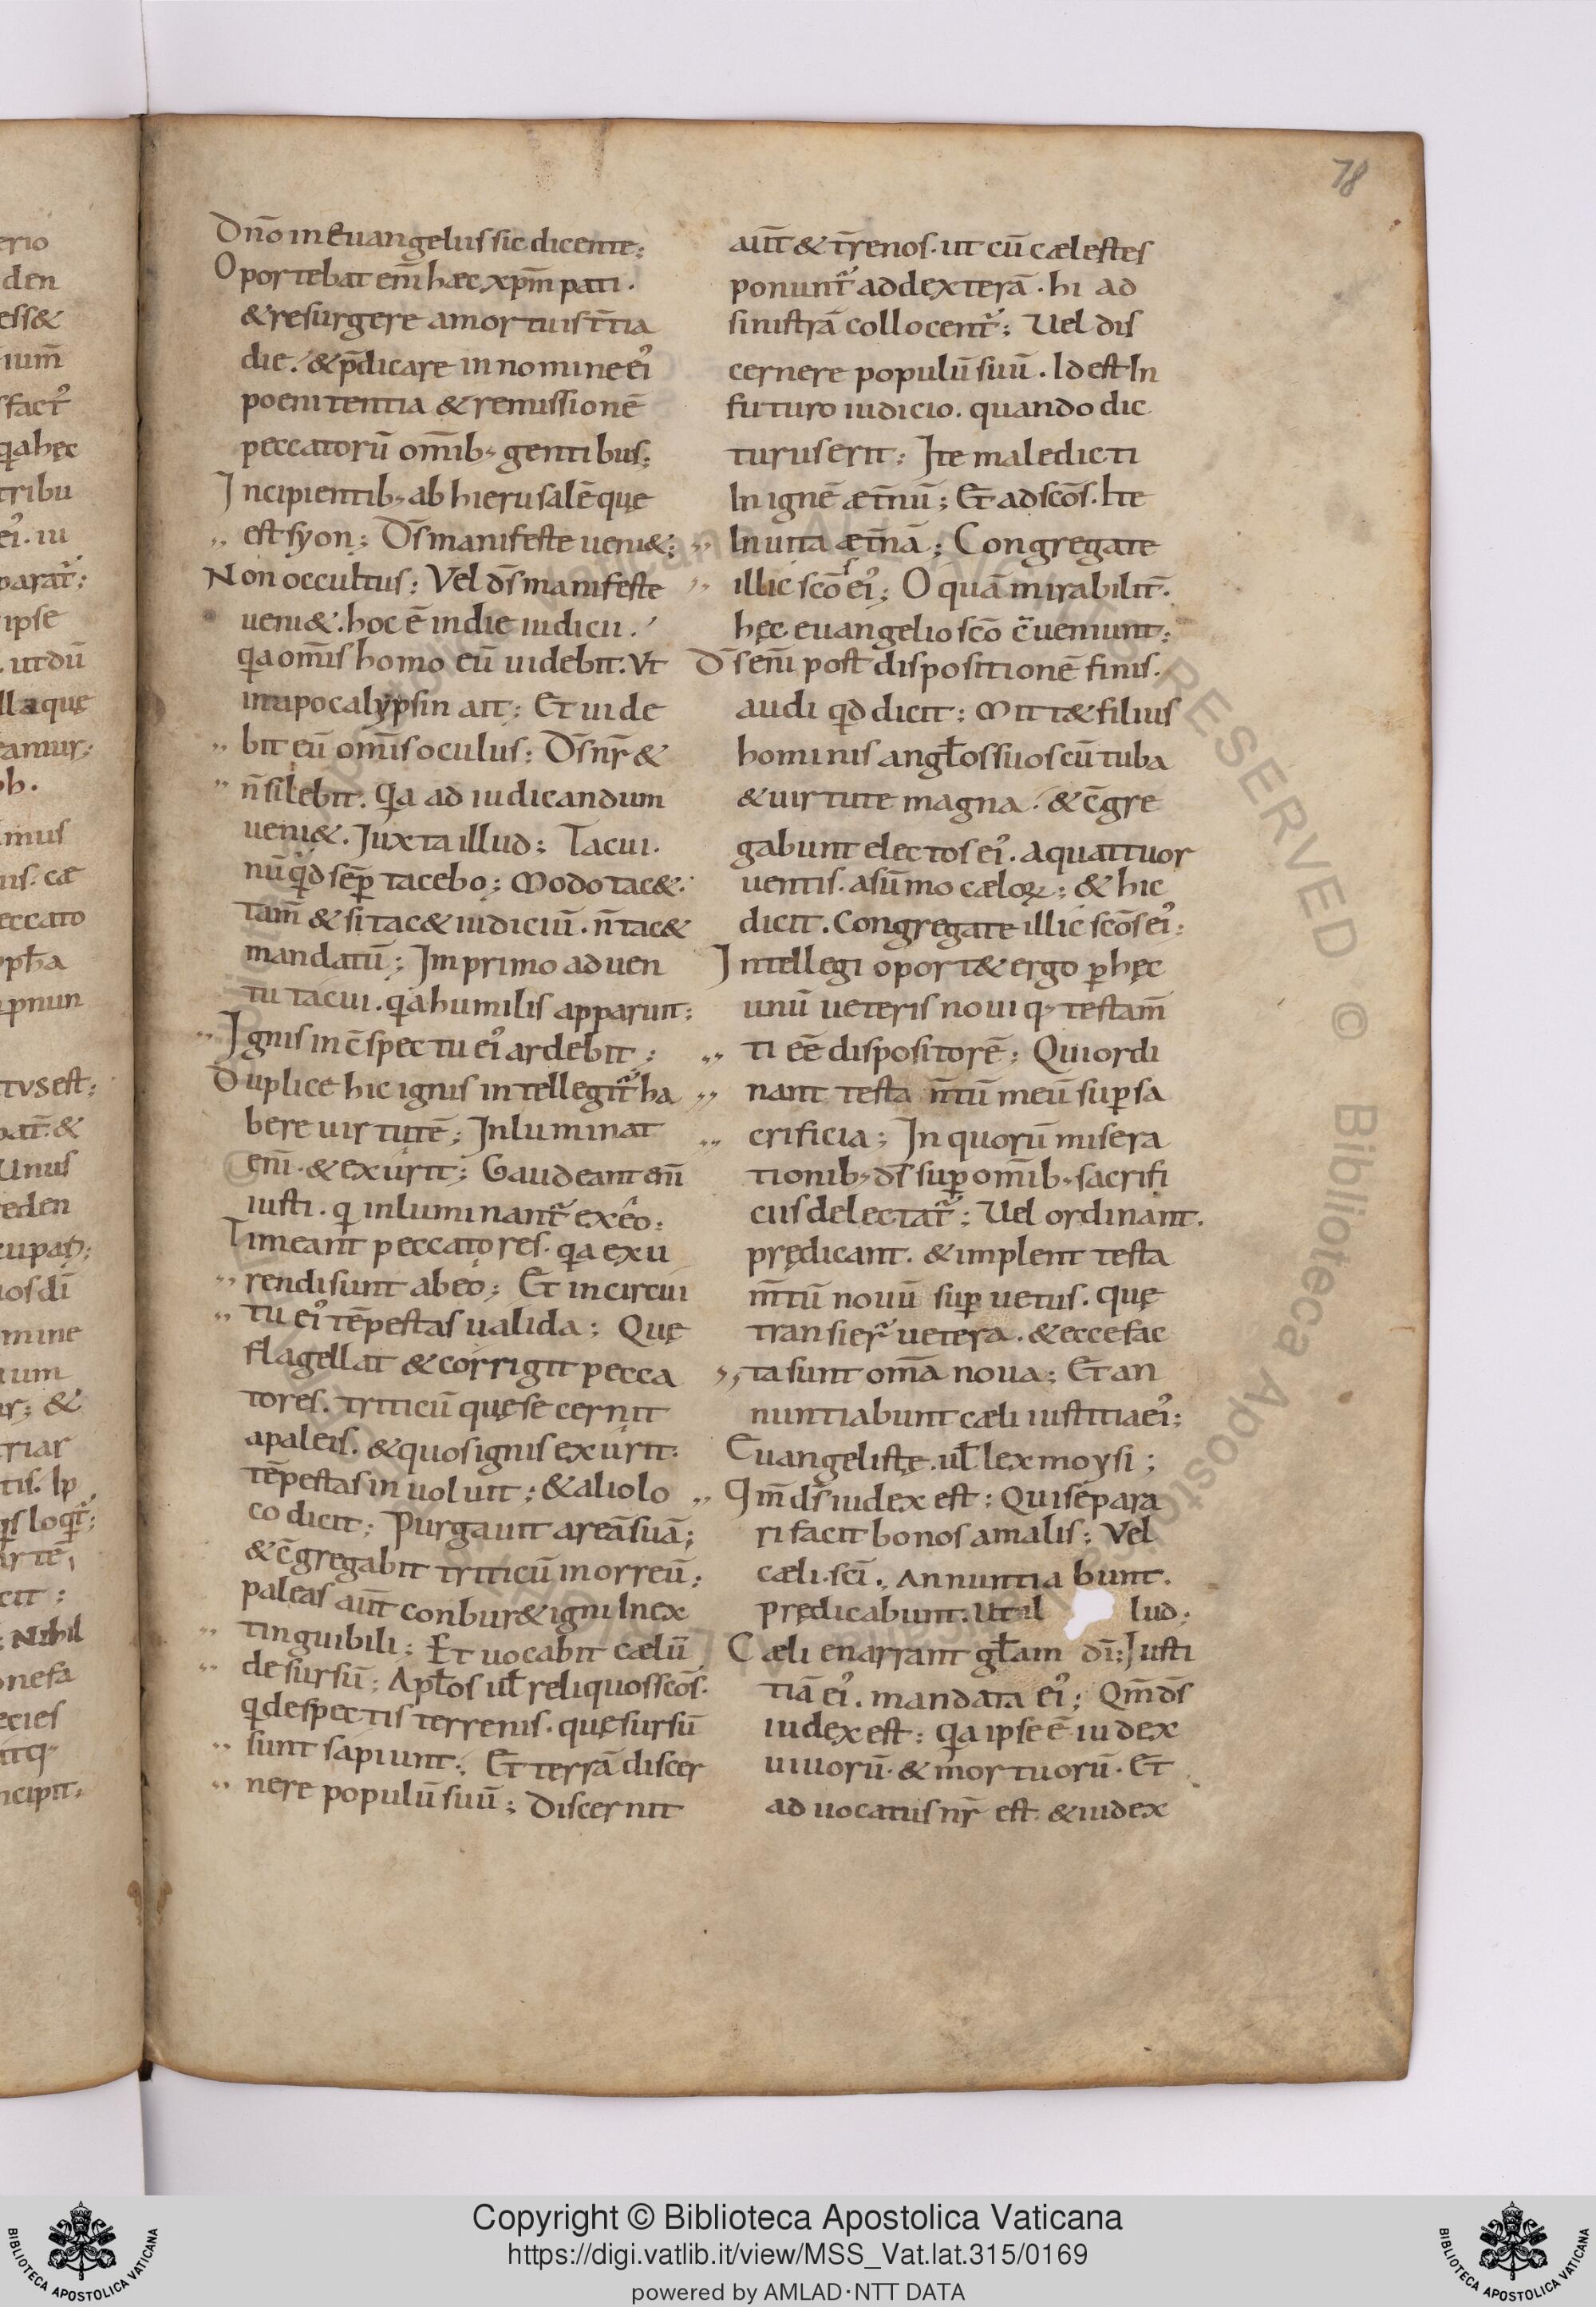 78
Dn̄o in Euangeliis sic dicente;
Oportebat em̄ hæc xpm̄ pati.
& resurgere a mortuis t̄tia
die. & p̄dicare in nomine ei᾽
poenitentia & remissionē
peccatorū om̄ib; gentibus;
Incipientib; ab hierusalē quę
est syon; Ds̄ manifeste ueni&;
Non occultus; Vel ds̄ manifeste
ueni&. hoc ē in die iudicii.
qa omīs homo eū uidebit. Vt
in apocalypsin ait; Et uide
bit eū om̄is oculus; Ds̄ nr̄ &
n̄ silebit. Qa ad iudicandum
ueni&. Juxta illud; Tacui.
nūqd sēp tacebo; Modo tac&.
tam̄ & si tac& iudiciū. n̄ tac&
mandatū; Im primo aduen
tu tacui. qa humilis apparuit;
Ignis in c̄spectu ei᾽ ardebit;
Duplice hic ignis intellegit̄ ha
bere uirtutē; Inluminat
em̄. & exurit; Gaudeant em̄
iusti. q inluminant̄ ex eo;
Timeant peccatores. qa exu
rendi sunt ab eo; Et in circui
tu ei᾽ tēpestas ualida; Quę
flagellat & corrigit pecca
tores. triticū quę secernit
a paleis. & quos ignis exurit.
tēpestas inuoluit; & alio lo
co dicit; Purgauit areā suā;
& c̄gregabit triticū in orreū;
paleas aut̄ conbur& igni Inex
tinguibili; Et uocabit cælū
desursū; Apl̄os ul̄ reliquos scōs.
q despectis terrenis. quę sursū
sunt sapiunt; Et terrā discer
nere populū suū; Discernit
aut̄ & tr̄enos. ut cū cælestes
ponunt̄ ad dexterā. hi ad
sinistrā collocent̄; Uel dis
cernere populū suū. Id est In
futuro iudicio. quando dic
turus erit; Ite maledicti
In ignē æt̄nū; Et ad scōs. Ite
In uita æt̄nā; Congregate
illic scōs ei᾽; O quā mirabilit̄.
hęc euangelio scō c̄ueniunt;
Ds̄ em̄ post dispositionē finis.
audi qd dicit; Mitt& filius
hominis angl̄os suos cū tuba
& uirtute magna. & c̄gre
gabunt electos ei᾽. a quattuor
uentis. a sūmo cæloꝝ; & hic
dicit. Congregate illic scōs ei᾽;
Intellegi oport& ergo p hęc
unū ueteris noui q; testam̄
ti eē dispositorē; Qui ordi
nant testa m̄tū meū sup sa
crificia; In quorū misera
tionib; ds̄ sup om̄ib; sacrifi
ciis delectat̄; Uel ordinant.
prędicant. & implent testa
m̄tū nouū sup uetus. quę
transier̄ uetera. & ecce fac
ta sunt om̄a noua; Et an
nuntiabunt cæli iustitia ei᾽;
Euangelistę. ul̄ lex moysi;
Qm̄ ds̄ iudex est; Qui separa
ri facit bonos a malis; Vel
cæli. scī. Annuntia bunt.
prędicabunt. Ut il lud;
Cæli enarrant gl̄am dī; Iusti
tiā ei᾽. mandata ei᾽; Qm̄ ds̄
iudex est; qa ipse ē iudex
uiuorū. & mortuorū. Et
aduocatus nr̄ est & iudex
Copyright © Biblioteca Apostolica Vaticana
https://digi.vatlib.it/view/MSS_Vat.lat.315/0169
powered by AMLAD·NTT DATA